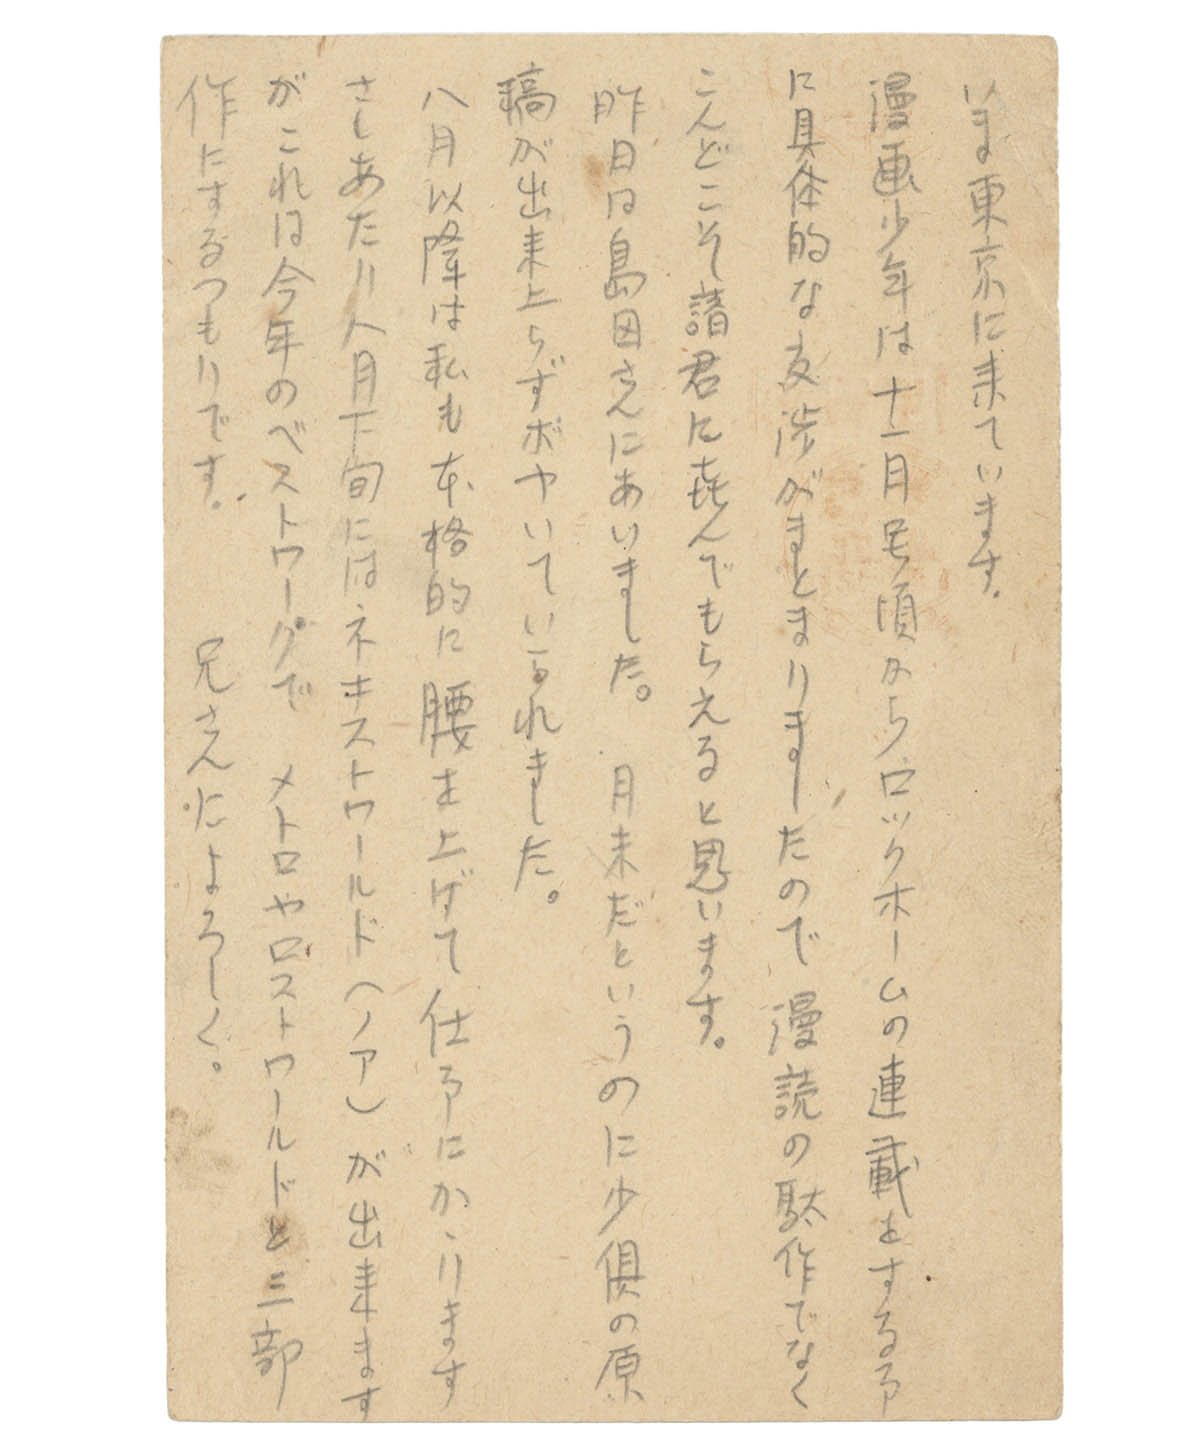 いま東京に来ています。
漫画少年は十一月号頃からロックホームの連載をする予
に具体的な交渉がまとまりましたので 漫読の駄作でなく
こんどこそ諸君に喜んでもらえると思います。
昨日は島田さんにあいました。 月末だというのに少倶の原
稿が出来上らずボヤいていられました。
八月以降は私も本格的に腰を上げて仕事にかゝります
さしあたり八月下旬にはネキストワールド(ノア)が出来ます
がこれは今年のベストワークで メトロやロストワールドと三部
作にするつもりです。 兄さんによろしく。